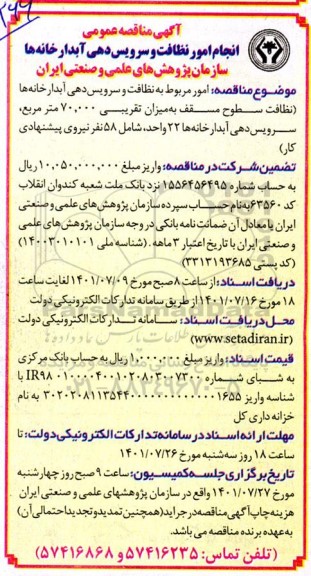 آگهی مناقصه عمومی
انجام امور نظافت و سرویس‌دهی آبدارخانه‌ها
سازمان پژوهش‌های علمی و صنعتی ایران
موضوع مناقصه: امور مربوط به نظافت و سرویس‌دهی آبدارخانه‌ها
(نظافت سطوح مسقف به‌میزان تقریبی ۷۰,۰۰۰ متر مربع،
سرویس‌دهی آبدارخانه‌ها ۲۲ واحد، شامل ۵۸ نفر نیروی پیشنهادی
کار)
تضمین شرکت در مناقصه: واریز مبلغ ۱۰,۰۵۰,۰۰۰,۰۰۰ ریال
به حساب شماره ۱۵۵۶۴۵۶۴۹۵ نزد بانک ملت شعبه کندوان انقلاب
کد ۶۳۵۶۰ به‌نام حساب سپرده سازمان پژوهش‌های علمی و صنعتی
ایران یا معادل آن ضمانت نامه بانکی در وجه سازمان پژوهش‌های علمی
و صنعتی ایران با تاریخ اعتبار ۳ ماهه. (شناسه ملی ۱۴۰۰۳۰۱۰۱۰۱)
(کد پستی ۳۳۱۳۱۹۳۶۸۵)
دریافت اسناد: از ساعت ۸ صبح مورخ ۱۴۰۱/۰۷/۰۹ لغایت ساعت
۱۸ مورخ ۱۴۰۱/۰۷/۱۶ از طریق سامانه تدارکات الکترونیکی دولت
محل دریافت اسناد: سامانه تدارکات الکترونیکی دولت
(www.setadiran.ir)
قیمت اسناد: واریز مبلغ ۱,۰۰۰,۰۰۰ ریال به حساب بانک مرکزی
به شبای شماره IR۹۸۰۱۰۰۰۰۴۰۰۱۰۲۰۸۰۳۰۰۷۳۰۱ با
شناسه واریز ۳۰۲۰۲۰۸۱۱۳۵۴۴۰۰۰۰۰۰۰۰۰۰۰۰۰۰۱۶۵۵ به نام
خزانه داری کل
مهلت ارائه اسناد در سامانه تدارکات الکترونیکی دولت: تا
ساعت ۱۸ روز سه‌شنبه مورخ ۱۴۰۱/۰۷/۲۶
تاریخ برگزاری جلسه کمیسیون: ساعت ۹ صبح روز چهارشنبه
مورخ ۱۴۰۱/۰۷/۲۷ واقع در سازمان پژوهشهای علمی و صنعتی ایران
هزینه چاپ آگهی مناقصه در جراید (همچنین تمدید و تجدید احتمالی آن)
به‌عهده برنده مناقصه می باشد.
(تلفن تماس: ۵۷۴۱۶۲۳۵ و ۵۷۴۱۶۸۶۸)